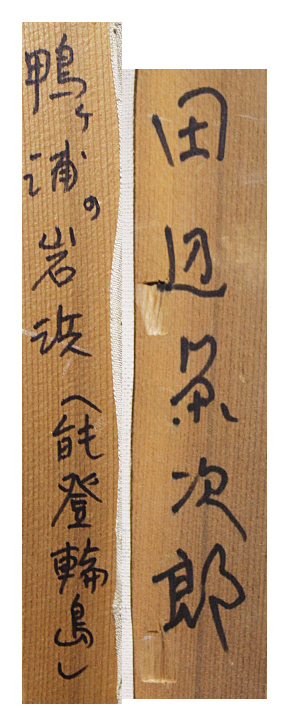 田辺栄次郎
鴨ヶ浦の岩浜（能登輪島）